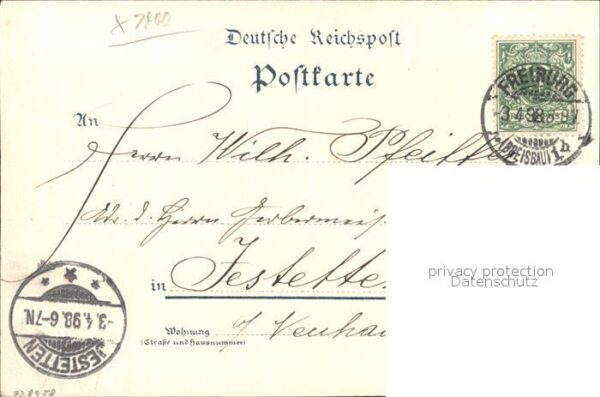 x 7800
Deutsche Reichspost
Postkarte
FREIBURG
3.4.98
(BREISGAU)
An
Herrn Wilh. Pfeiffe
Adr. d. Herrn Gerbermeis
in Jestette
Wohnung
(Straße und Hausnummer)
o/ Neuha
JESTETTEN
-3.4.98.6-7N.
privacy protection
Datenschutz